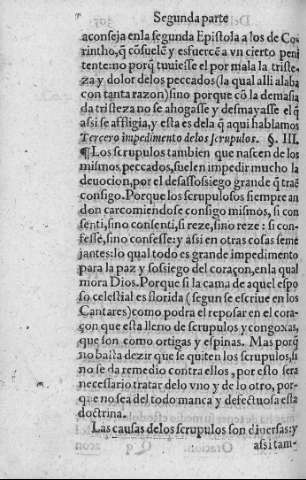 Segunda parte
aconseja enla segunda Epistola a los de Co
rintho, q̃ cõsuelẽ y esfuercẽ a vn cierto peni
tente: no porq̃ tuuiesse el por mala la triste-
za y dolor delos peccados (la qual alli alaba
con tanta razon) sino porque cõ la demasia
da tristeza no se ahogasse y desmayasse el q̃
assi se affligia, y esta es dela q̃ aqui hablamos
Tercero impedimento de los scrupulos. §. III.
¶ Los scrupulos tambien que nascen de los
mismos peccados, suelen impedir mucho la
deuocion, por el desassossiego grande q̃ traẽ
consigo. Porque los scrupulosos siempre an
don carcomiendose consigo mismos, si con
senti, sino consenti, si reze, sino reze: si con-
fesse, sino confesse: y assi en otras cosas seme
jantes: lo qual todo es grande impedimento
para la paz y sossiego del coraçon, enla qual
mora Dios. Porque si la cama de aquel espo
so celestial es florida (segun se escriue en los
Cantares) como podra el reposar en el cora-
çon que esta lleno de scrupulos y congoxas,
que son como ortigas y espinas. Mas porq̃
no basta dezir que se quiten los scrupulos, si
no se da remedio contra ellos, por esto sera
necessario tratar delo vno y de lo otro, por-
que no sea del todo manca y defectuosa esta
doctrina.
Las causas delos scrupulos son diuersas: y
assi tam-